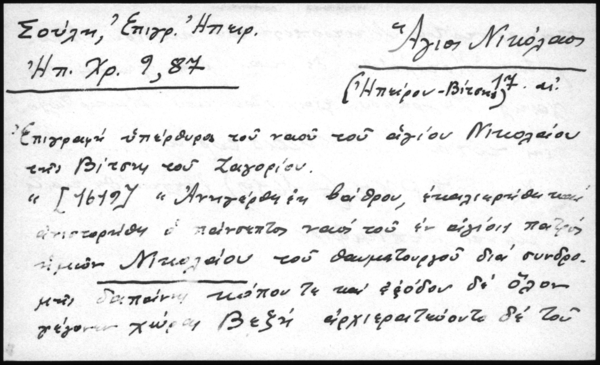 Σούλη, Ἐπιγρ. Ἠπειρ.
Ἅγιος Νικόλαος
Ἠπ. Χρ. 9, 87
(Ἠπείρου-Βίτσης) 17. αἰ.
Ἐπιγραφή ὑπέρθυρος τοῦ ναοῦ τοῦ ἁγίου Νικολάου
τῆς Βίτσης τοῦ Ζαγορίου.
"[1619] "Ἀνηγέρθη ἐκ βάθρου, ἐκαλιερήθη καί
ἀνιστορήθη ὁ πάνσεπτος ναός τοῦ ἐν ἁγίοις πατρός
ἡμῶν Νικολάου τοῦ θαυματουργοῦ διά συνδρο-
μῆς δαπάνης κόπου τε καί ἐξόδου δέ ὅλον
γέγονεν χώρας Βεζή ἀρχιερατεύοντο δέ τοῦ